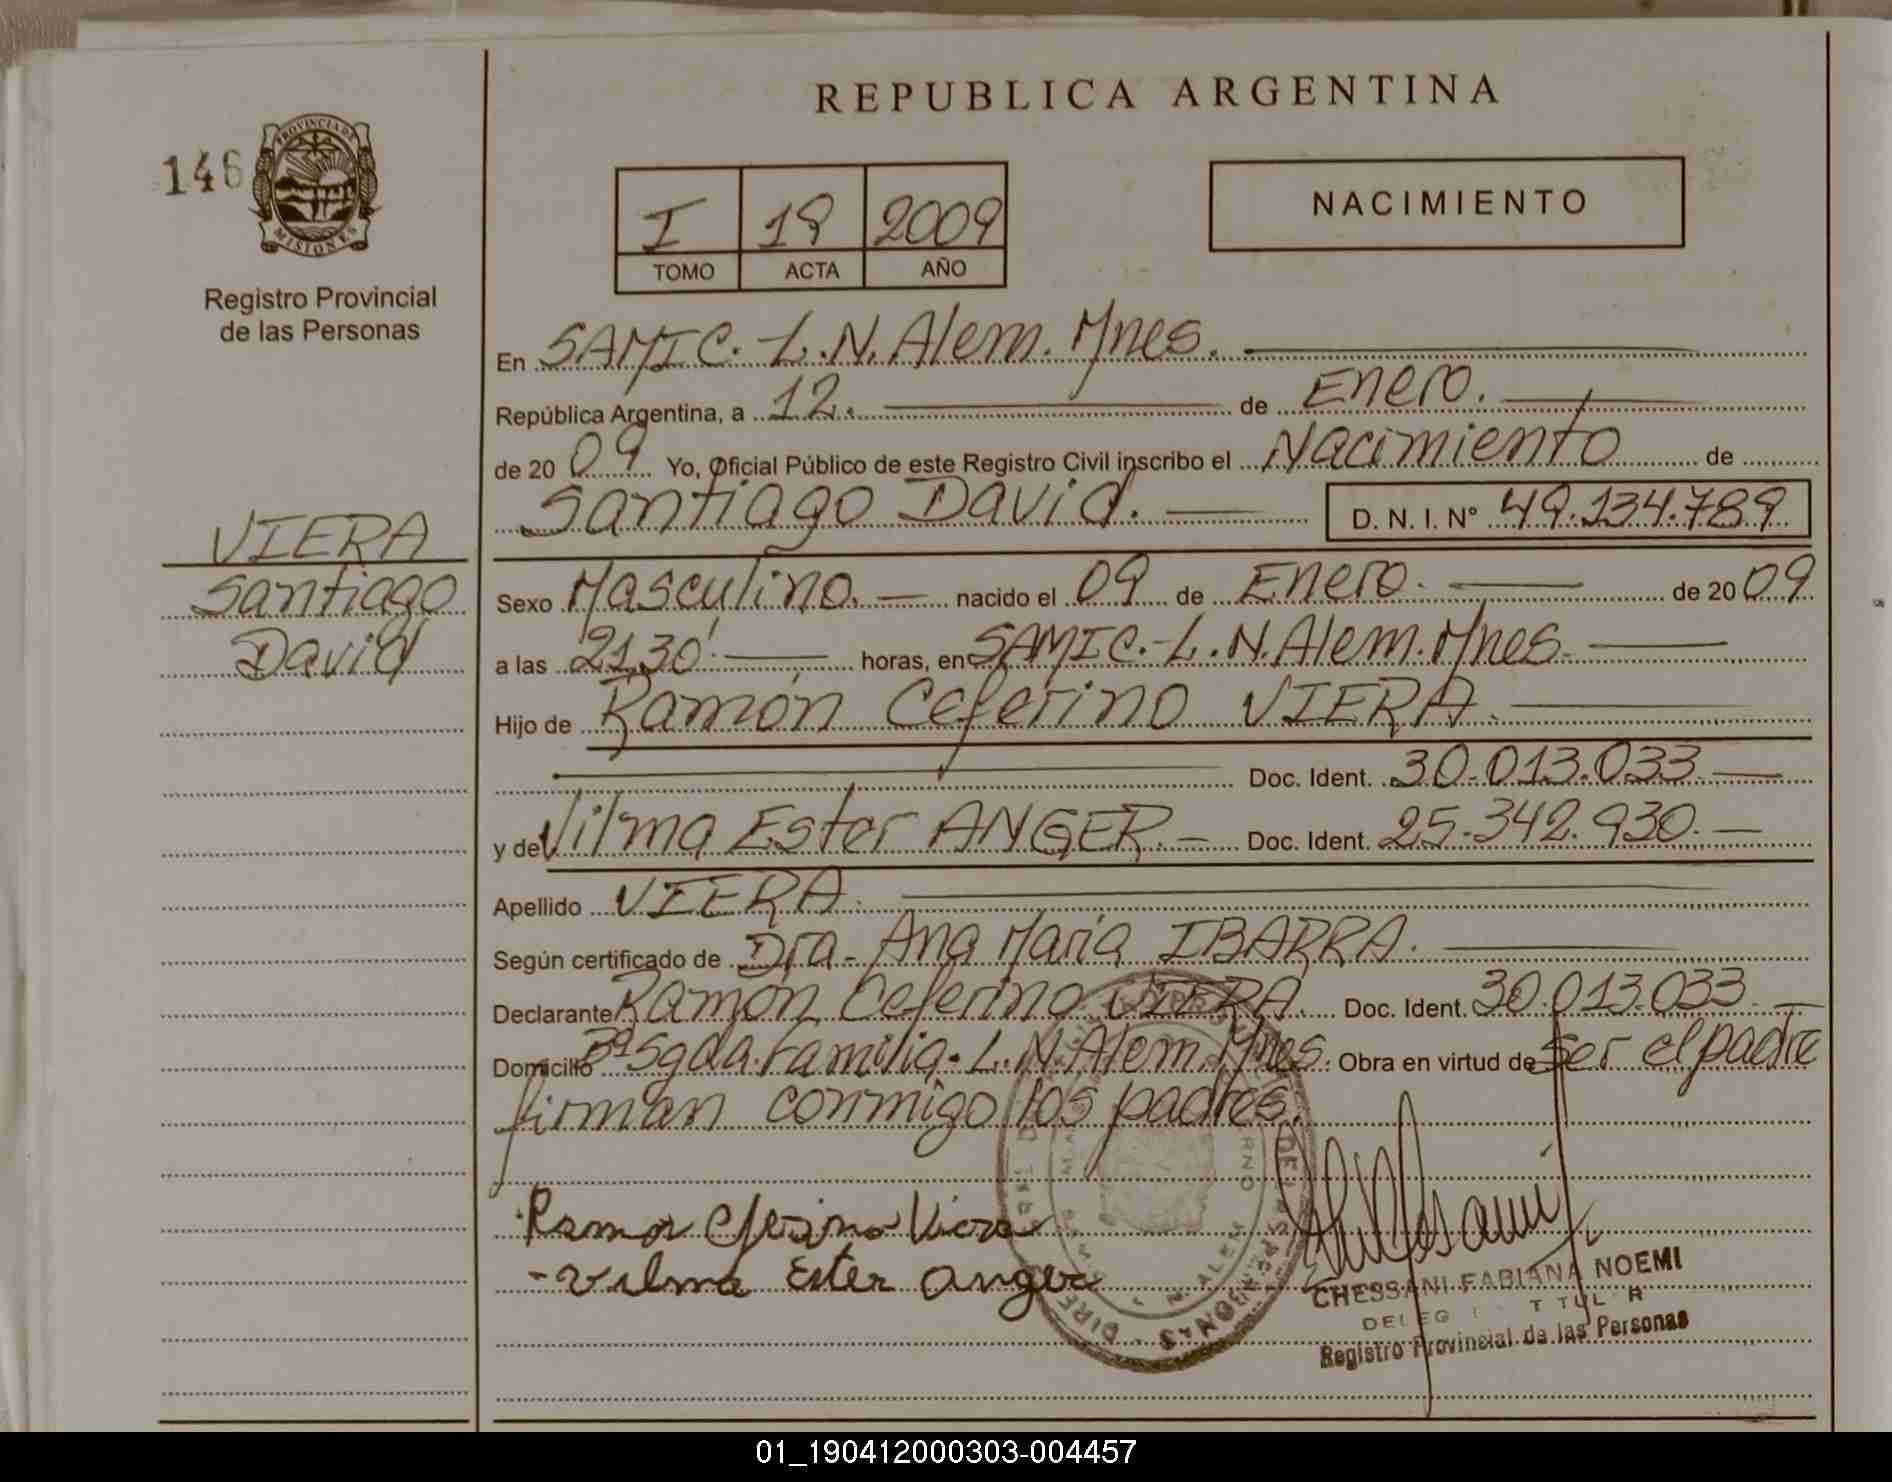 REPUBLICA ARGENTINA
146
PROVINCIA DE
MISIONES
Registro Provincial
de las Personas
I 19 2009
TOMO ACTA AÑO
NACIMIENTO
En SAMIC.-L.N.Alem.Mnes.
República Argentina, a 12. de Enero.
de 2009 Yo, Oficial Público de este Registro Civil inscribo el Nacimiento de
Santiago David. D. N. I. N° 49.134.789
VIERA
Santiago
David
Sexo Masculino. nacido el 09 de Enero. de 2009
a las 21,30' horas, en SAMIC.-L.N.Alem.Mnes.
Hijo de Ramón Ceferino VIERA.
Doc. Ident. 30.013.033
y de Vilma Ester ANGER.- Doc. Ident. 25.342.930.
Apellido VIERA.
Según certificado de Dra- Ana María IBARRA.
Declarante Ramón Ceferino VIERA. Doc. Ident. 30.013.033.
Domicilio Bº Sgda.Familia.L.N.Alem.Mnes. Obra en virtud de Ser el padre
firman conmigo los padres.
Ramon Ceferino Viera
-Vilma Ester Anger
CHESSANI FABIANA NOEMI
Registro Provincial de las Personas
01_190412000303-004457